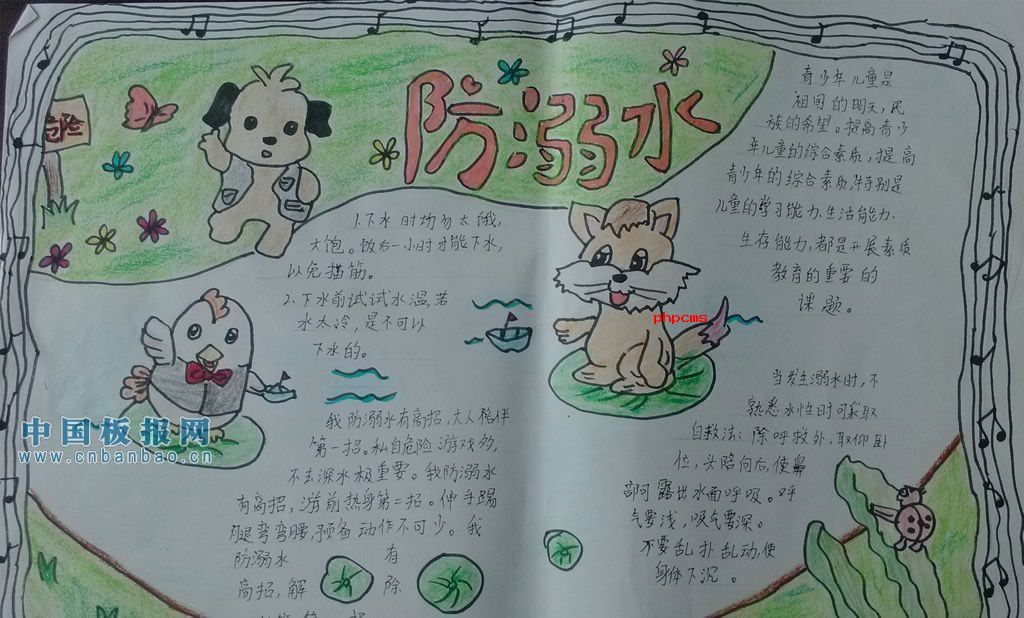 防溺水
危险
青少年儿童是
祖国的明天,民
族的希望。提高青少
年儿童的综合素质,提高
青少年的综合素质,特别是
儿童的学习能力.生活能力.
生存能力,都是开展素质
教育的重要的
课题。
1.下水时切勿太饿,
太饱。饭后一小时才能下水,
以免抽筋。
2.下水前试试水温,若
水太冷,是不可以
下水的。
phpcms
我防溺水有高招,大人陪伴
第一招。私自危险游戏多,
不去深水极重要。我防溺水
有高招,游前热身第二招。伸手踢
腿弯弯腰,预备动作不可少。我
防溺水 有
高招,解 除
当发生溺水时,不
熟悉水性时可采取
自救法:除呼救外,取仰卧
位,头陪向后,使鼻
部可露出水面呼吸。呼
气要浅,吸气要深。
不要乱扑乱动,使
身体下沉。
中国板报网
www.cnbanbao.cn